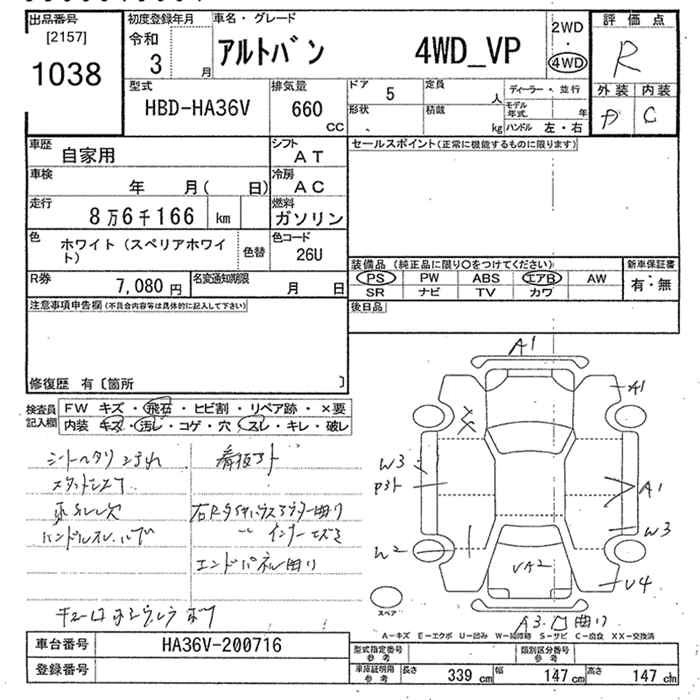 出品番号
[2157]
1038
初度登録年月
令和
3 月
車名・グレード
アルトバン 4WD_VP
2WD
・
4WD
評価点
R
外装 内装
D C
型式
HBD-HA36V
排気量
660
CC
ドア 5
定員
人
形状
積載
kg
ディーラー・並行
モデル年式
年
ハンドル 左・右
車歴
自家用
シフト
AT
車検
年 月( 日)
冷房
AC
走行
8万6千166 km
燃料
ガソリン
色
ホワイト(スペリアホワイト)
色替
色コード
26U
R券
7,080 円
名変通知期限
月 日
セールスポイント(正常に機能するものに限ります)
装備品 (純正品に限り〇をつけてください)
PS PW ABS エアB AW
SR ナビ TV カワ
新車保証書
有・無
後日品
注意事項申告欄(不具合内容等は具体的に記入して下さい)
修復歴 有〔箇所 〕
検査員記入欄
FW キズ・飛石・ヒビ割・リペア跡・×要
内装 キズ・汚レ・コゲ・穴・スレ・キレ・破レ
シートヘタリ
看板アト
エンドパネル曲り
A1
A1
W3
A1
W3
W2
VA2
U4
A3
曲り
スペア
A−キズ E−エクボ U−凹み W−補修跡 S−サビ C−腐食 XX−交換済
車台番号
HA36V-200716
登録番号
型式指定番号
参考
類別区分番号
参考
車庫証明用
参考
長さ 339 cm
幅 147 cm
高さ 147 cm